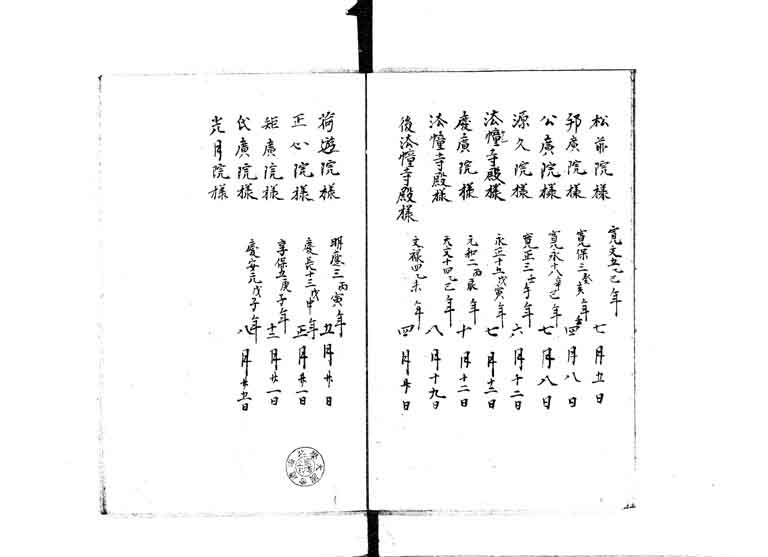 松前院様 寛文五乙巳年 七月五日
邦廣院様 寛保三癸亥年 四月八日
公廣院様 寛永十八辛巳年 七月八日
源久院様 寛正三壬午年 六月十二日
法幢寺殿様 永正十五戊寅年 七月十二日
慶廣院様 元和二丙辰年 十月十二日
法幢寺殿様 天文十四乙巳年 八月十九日
後法幢寺殿様 文禄四乙未年 四月廿日
荷遊院様 明應三丙寅年 五月廿日
正心院様 慶長十三戊申年 正月廿一日
矩廣院様 享保五庚子年 十二月廿一日
氏廣院様 慶安元戊子年 八月廿五日
光月院様